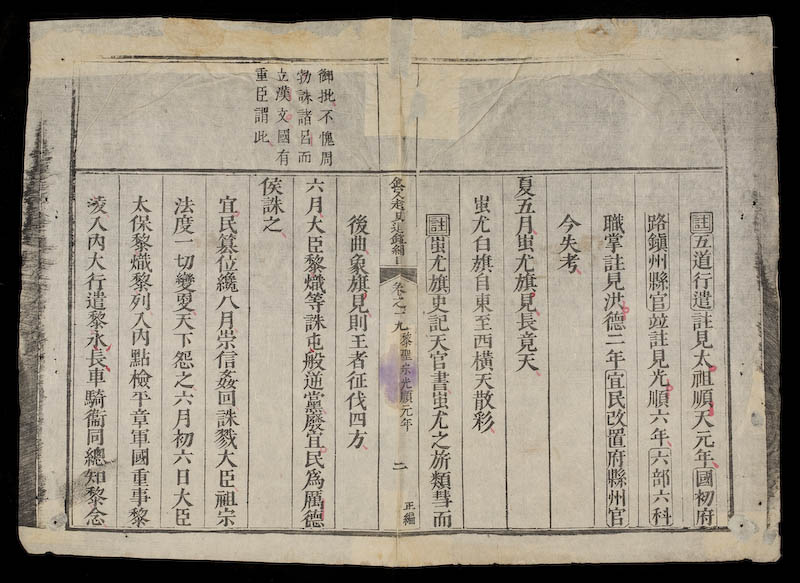 註五道行遣註見太祖順天元年國初府
路鎮州縣官竝註見光順六年六部六科
職掌註見洪德二年宜民改置府縣州官
今失考
夏五月蚩尤旗見長竟天
蚩尤白旗自東至西橫天散彩
註蚩尤旗史記天官書蚩尤之旂類彗而
後曲象旗見則王者征伐四方
欽定越史通鑑綱目
卷之十九
黎聖宗光順元年
二
正編
御批不愧周
勃誅諸呂而
立漢文國有
重臣謂此
六月大臣黎熾等誅屯般逆黨廢宜民爲厲德
侯誅之
宜民簒位纔八月崇信姦回誅戮大臣祖宗
法度一切變更天下怨之六月初六日大臣
太保黎熾黎列入內點檢平章軍國重事黎
淩入內大行遣黎永長車騎衞同總知黎念